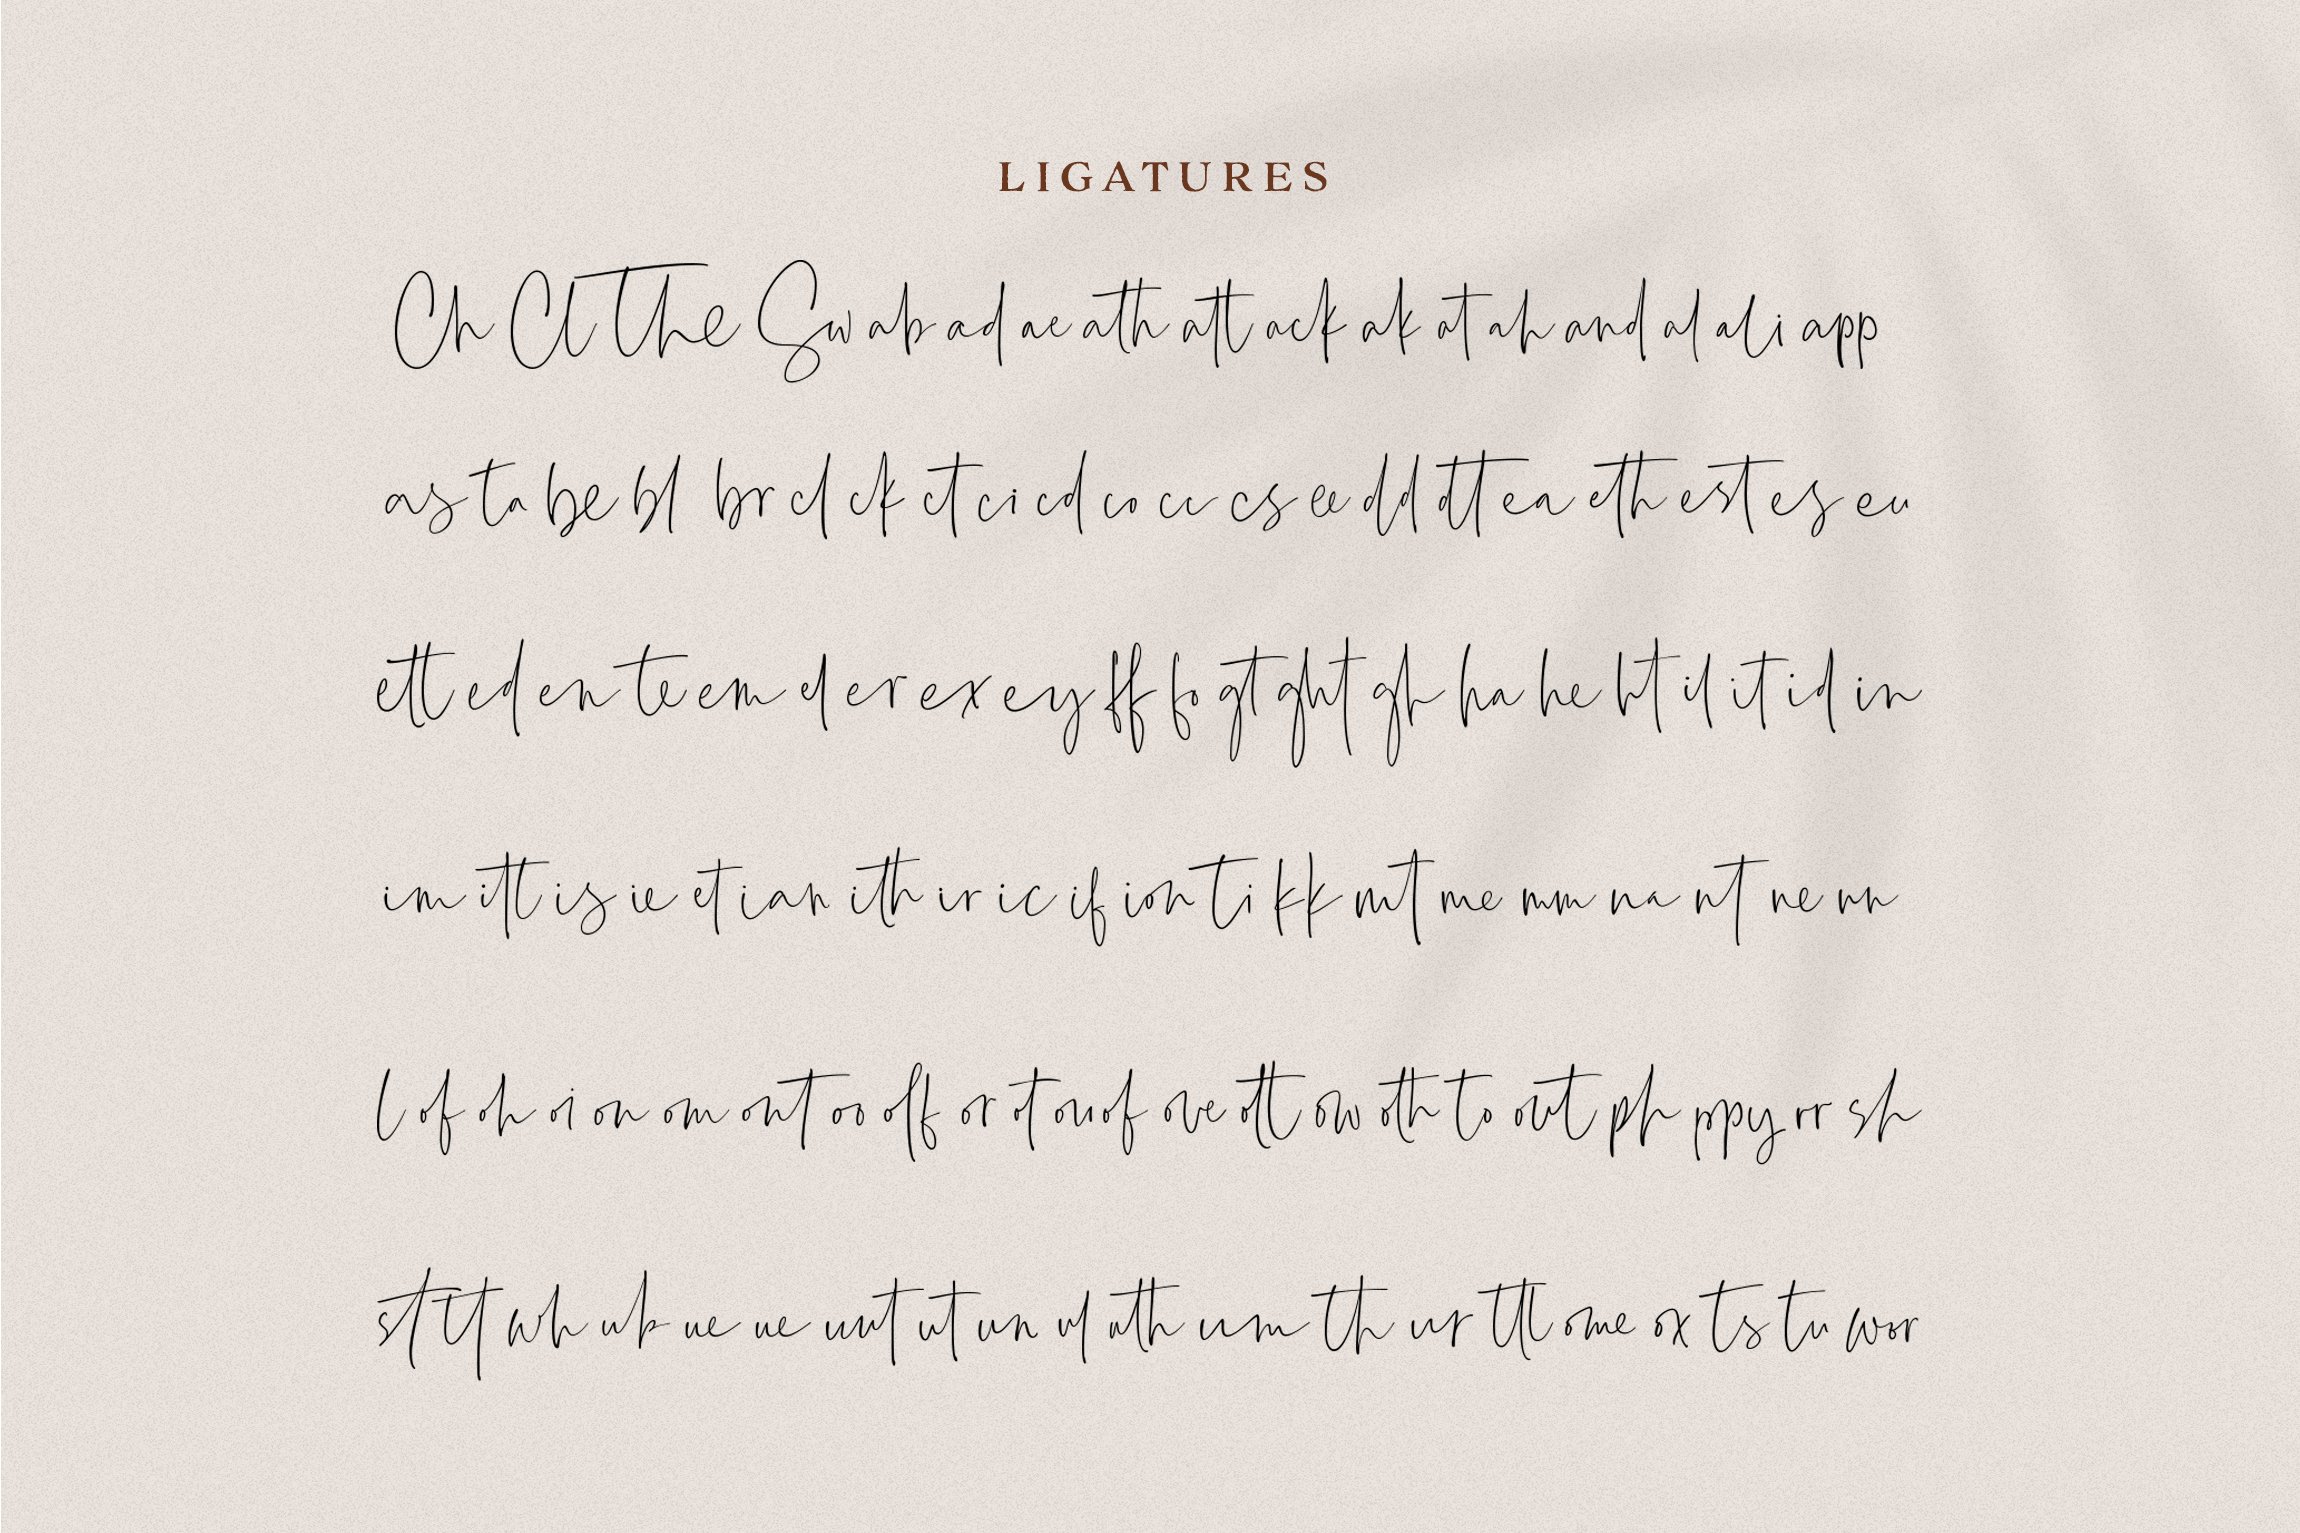 LIGATURES
Ch Cl The Sw ab ad ae ath att ack ak at ah and al ali app
as ta be bl br cl ck ct ci cd co cc cs ee dd dtt ea eth est es eu
ett ed en te em el er ex ey ff fo gt ght gh ha he ht il it id in
im itt is ie et ian ith ir ic if ion ti kk mt me mm na nt ne nn
l of oh oi on om ont oo off or ot ou of ove ott ow oth to out ph ppy rr sh
st tt wh ub ue ve unt ut un ul uth um th ur ttl ome ox ts tu wor